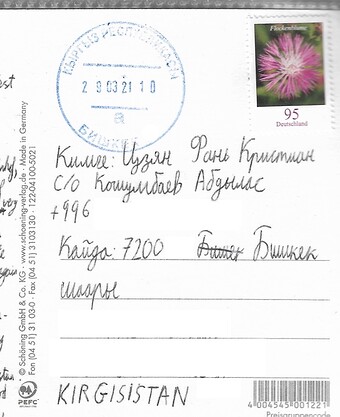 КЫРГЫЗ РЕСПУБЛИКАСЫ
29 03 21 10
а
БИШКЕК
Flockenblume
95
Deutschland
Кимге: Цузян Фань Кристиан
c/o Кошумбаев Абдылас
+996
Кайда: 7200 Бишкек
шаары
KIRGISISTAN
© Schöning GmbH & Co. KG · www.schoening-verlag.de · Made in Germany
Fon (04 51) 31 03-0 · Fax (04 51) 3103130 · 122-04100-5021
PEFC
4 004545 001221
Preisgruppencode